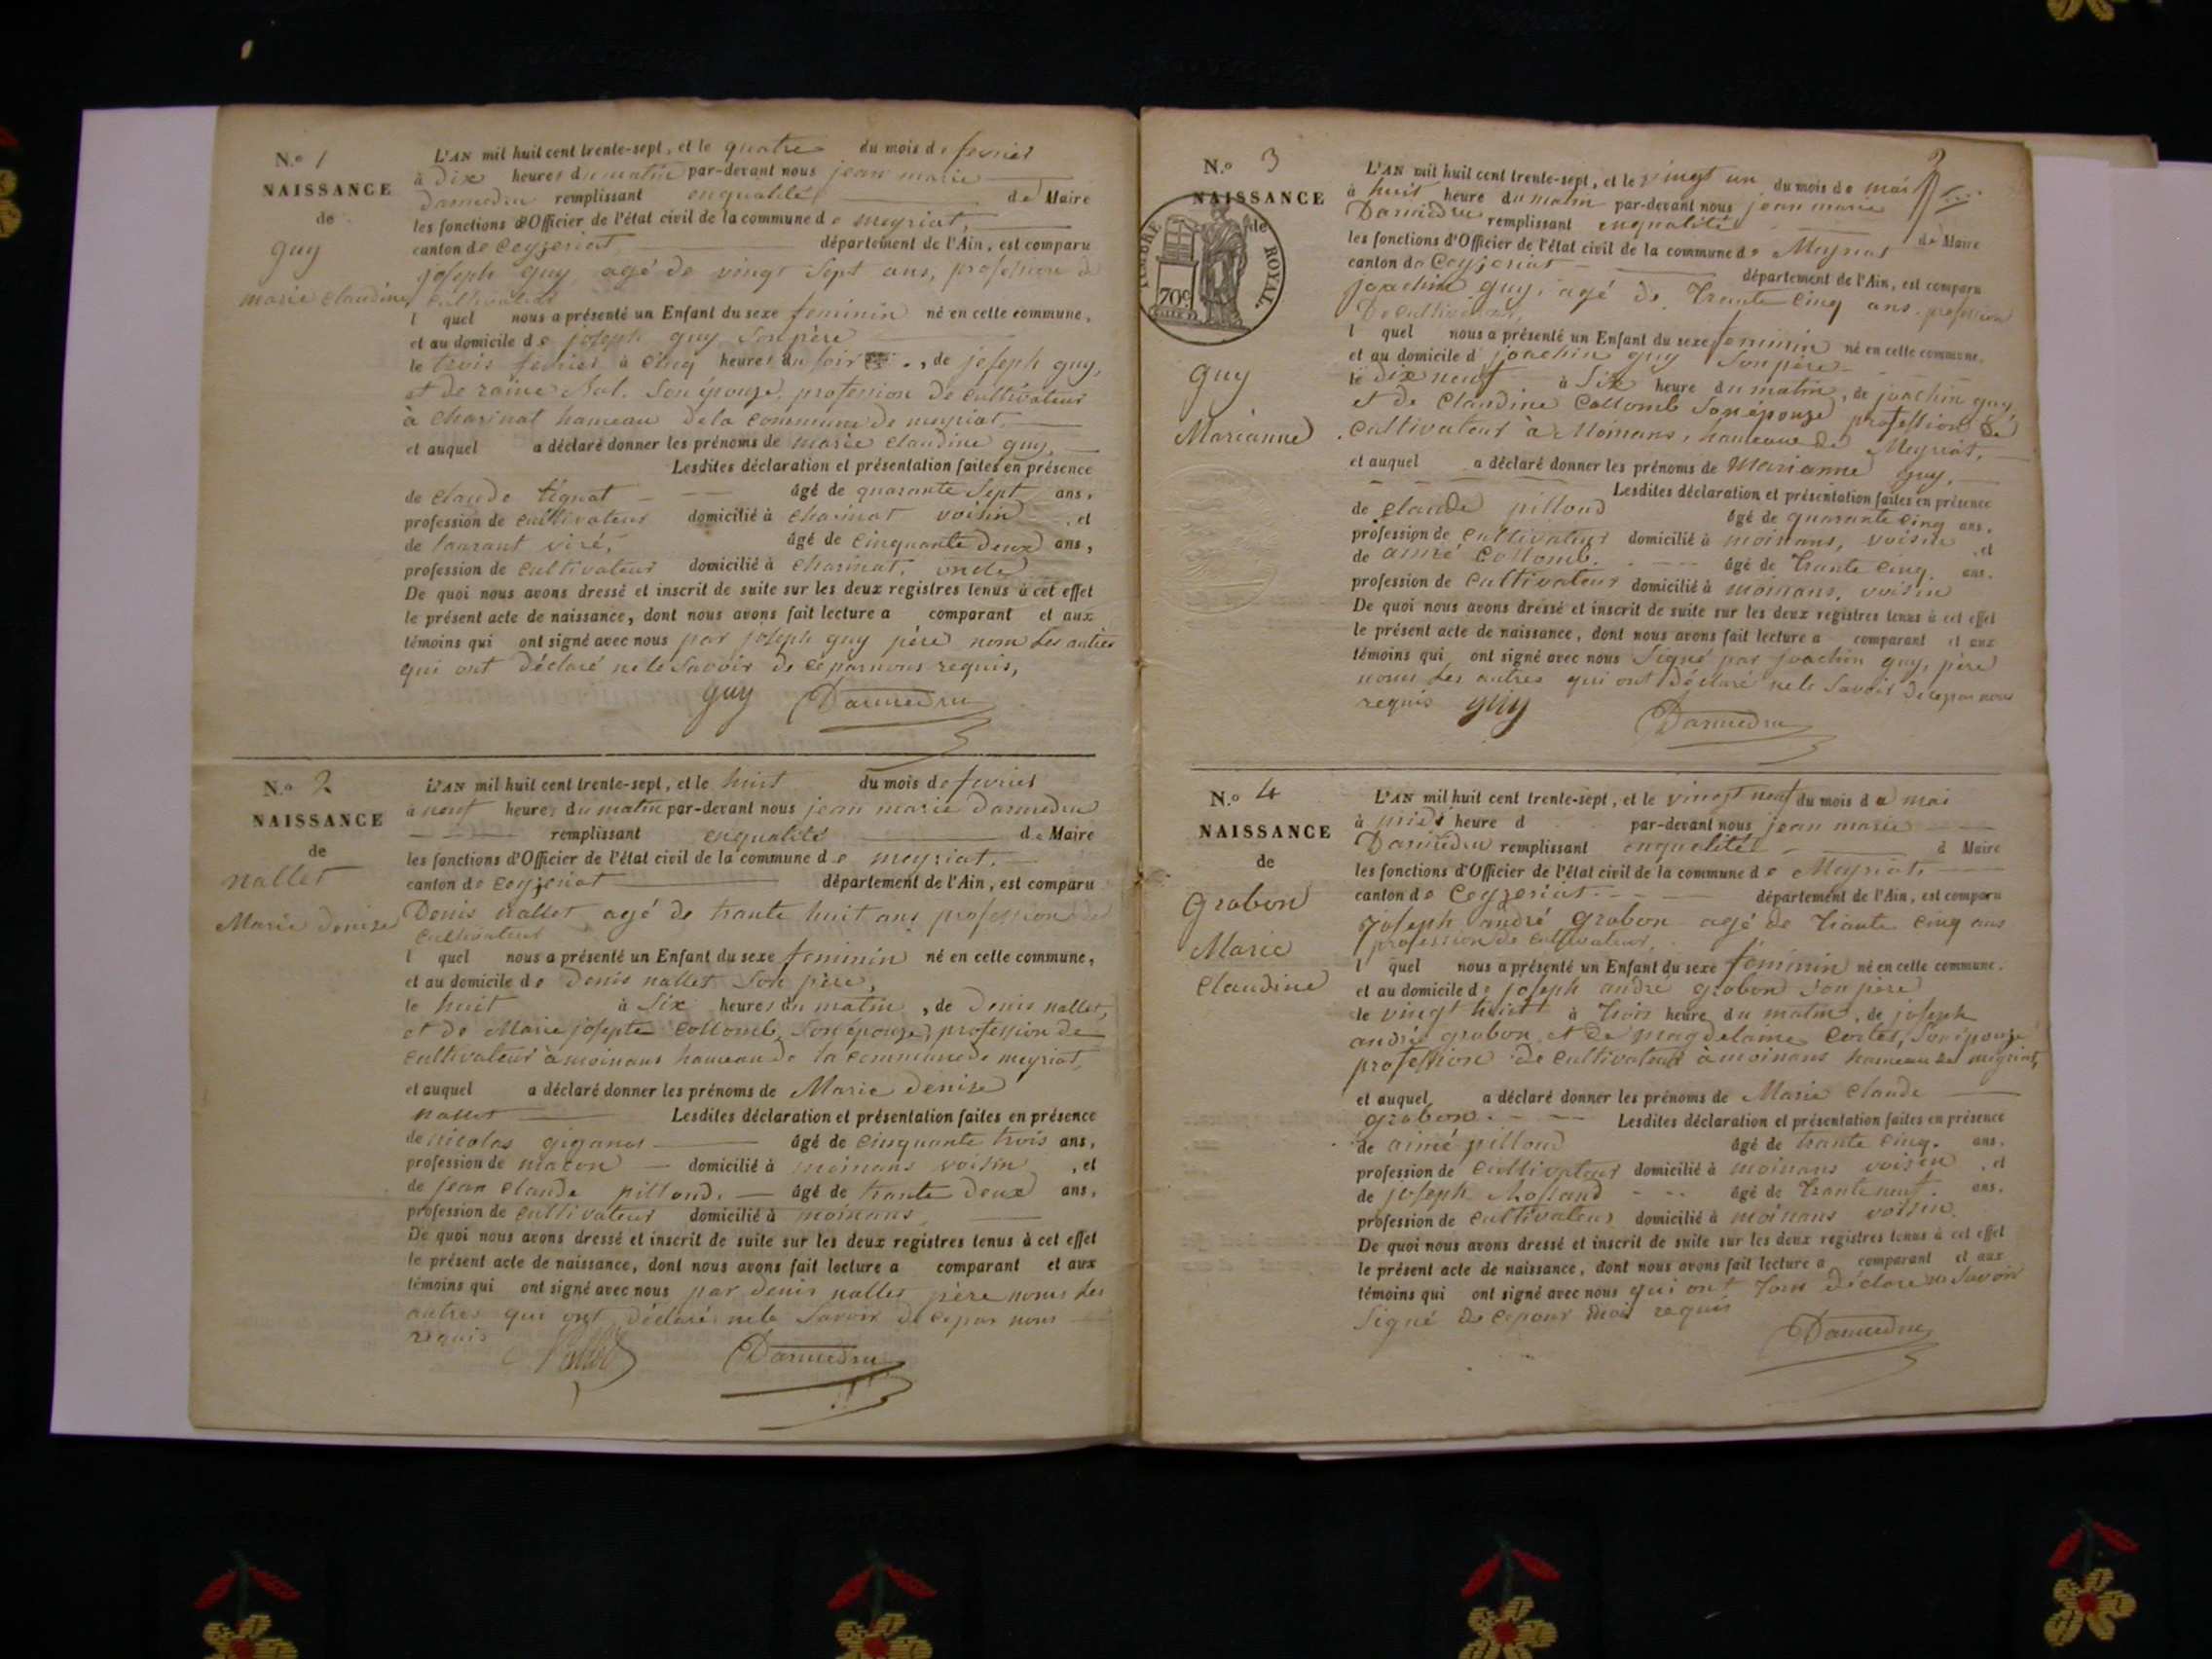 N.o 1
NAISSANCE
de
guy
marie claudine
L'AN mil huit cent trente-sept, et le quatre du mois de fevrier
à dix heures du matin par-devant nous jean marie
Darmedru remplissant enqualité de Maire
les fonctions d'Officier de l'état civil de la commune de meyriat,
canton de Ceyzeriat département de l'Ain, est comparu
joseph guy agé de vingt sept ans, profession de
cultivateur
l quel nous a présenté un Enfant du sexe feminin né en cette commune,
et au domicile de joseph guy son père
le trois fevrier à cinq heures du soir , de joseph guy,
et de raine son épouze, profession de cultivateur
à charinat hameau dela commune de meyriat,
et auquel a déclaré donner les prénoms de marie claudine guy,
Lesdites déclaration et présentation faites en présence
de claude tignat âgé de quarante sept ans,
profession de cultivateur domicilié à charinat voisin , et
de laurant viré, âgé de cinquante deux ans,
profession de cultivateur domicilié à charinat, oncle
De quoi nous avons dressé et inscrit de suite sur les deux registres tenus à cet effet
le présent acte de naissance, dont nous avons fait lecture a comparant et aux
témoins qui ont signé avec nous par joseph guy père nom les autres
qui ont déclaré nele savoir de ce parnous requis,
guy Darmedru
N.o 2
NAISSANCE
de
nallet
Marie denize
L'AN mil huit cent trente-sept, et le huit du mois de fevrier
à neuf heures du matin par-devant nous jean marie darmedru
remplissant enqualité de Maire
les fonctions d'Officier de l'état civil de la commune de meyriat,
canton de Ceyzeriat département de l'Ain, est comparu
Denis nallet agé de trante huit ans profession de
cultivateur
l quel nous a présenté un Enfant du sexe feminin né en cette commune,
et au domicile de denis nallet son père,
le huit à six heures du matin , de denis nallet,
et de Marie josepte collomb, son épouze, profession de
cultivateur à moinans hameau de la commune de meyriat,
et auquel a déclaré donner les prénoms de Marie denize
nallet Lesdites déclaration et présentation faites en présence
de nicolas âgé de cinquante trois ans,
profession de macon domicilié à moinans voisin , et
de jean claude pilloud, âgé de trante deux ans,
profession de cultivateur domicilié à moinans
De quoi nous avons dressé et inscrit de suite sur les deux registres tenus à cet effet
le présent acte de naissance, dont nous avons fait lecture a comparant et aux
témoins qui ont signé avec nous par denis nallet père les
autres qui ont déclaré nele savoir de ce par nous
requis
Nallet Darmedru
N.o 3
NAISSANCE
de
TIMBRE ROYAL.
70c
guy
Marianne
L'AN mil huit cent trente-sept, et le vingt un du mois de mai
à huit heure du matin par-devant nous jean marie
Darmedru remplissant enqualité de Maire
les fonctions d'Officier de l'état civil de la commune de Meyriat
canton de Ceyzeriat département de l'Ain, est comparu
joachin guy, agé de trante cinq ans profession
De cultivateur,
l quel nous a présenté un Enfant du sexe feminin né en cette commune,
et au domicile d joachin guy son père
le dix neuf à six heure du matin, de joachin guy,
et de claudine collomb son épouze profession de
cultivateur à Moinans, hameau de Meyriat,
et auquel a déclaré donner les prénoms de Marianne guy,
Lesdites déclaration et présentation faites en présence
de claude pilloud âgé de quarante cinq ans,
profession de cultivateur domicilié à moinans, voisin , et
de aimé Collomb. âgé de trante cinq. ans,
profession de cultivateur domicilié à moinans, voisin
De quoi nous avons dressé et inscrit de suite sur les deux registres tenus à cet effet
le présent acte de naissance, dont nous avons fait lecture a comparant et aux
témoins qui ont signé avec nous signé par joachin guy, père
les autres qui ont déclaré nele savoir de ce par nous
requis guy Darmedru
N.o 4
NAISSANCE
de
grabon
Marie
claudine
L'AN mil huit cent trente-sept, et le vingt neuf du mois de mai
à midi heure d par-devant nous jean marie
Darmedru remplissant enqualité d Maire
les fonctions d'Officier de l'état civil de la commune de Meyriat,
canton de Ceyzeriat département de l'Ain, est comparu
joseph andré grabon agé de trante cinq ans
profession de cultivateur,
l quel nous a présenté un Enfant du sexe féminin né en cette commune,
et au domicile de joseph andré grabon son père
le vingt huit à trois heure du matin, de joseph
andré grabon et de magdelaine cortes, son épouze
profession de cultivateur à moinans hameau de meyriat,
et auquel a déclaré donner les prénoms de Marie claude
grabon. Lesdites déclaration et présentation faites en présence
de aimé pilloud âgé de trante cinq. ans,
profession de cultivateur domicilié à moinans voisin , et
de joseph âgé de trante neuf. ans,
profession de cultivateur domicilié à moinans voisin.
De quoi nous avons dressé et inscrit de suite sur les deux registres tenus à cet effet
le présent acte de naissance, dont nous avons fait lecture a comparant et aux
témoins qui ont signé avec nous qui ont tous déclaré ne savoir
signé de requis
Darmedru